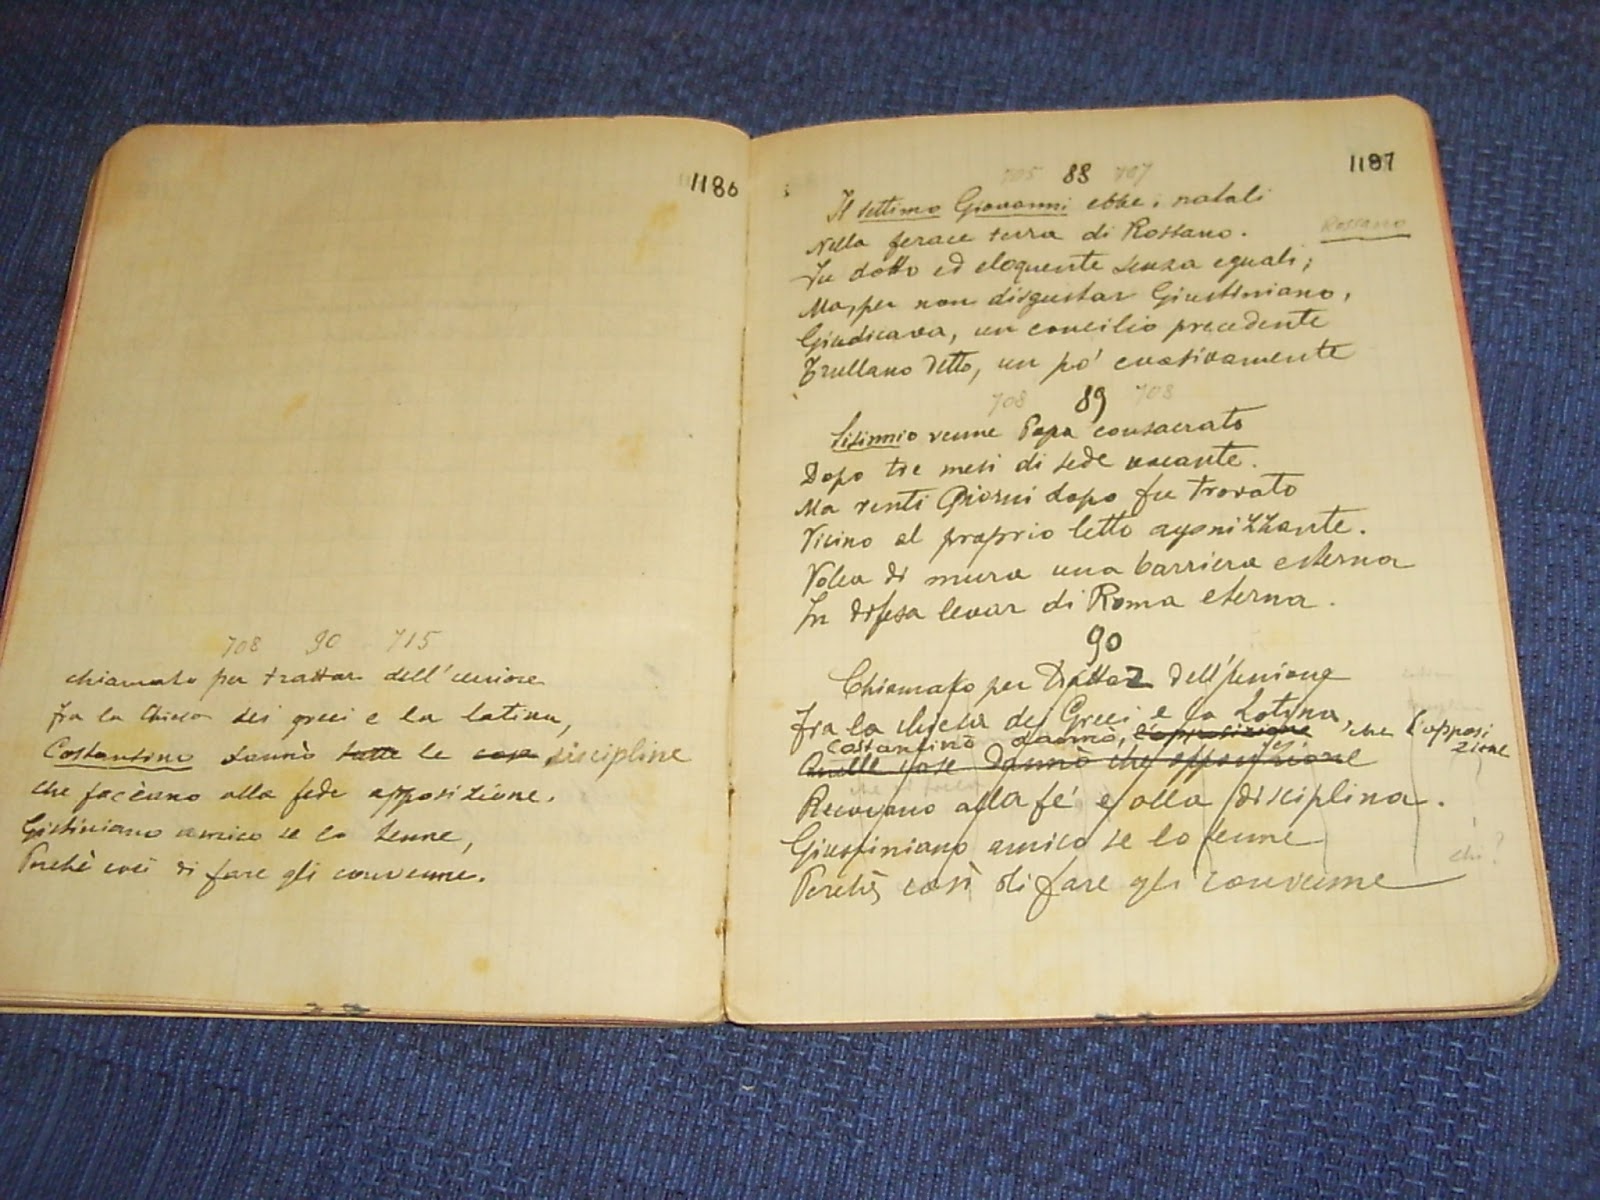 1186
708 90 715
chiamato per trattar dell'unione
fra la Chiesa dei greci e la latina,
Costantino dannò tutte le cose discipline
che facèano alla fede opposizione.
Giustiniano amico se lo tenne,
Perchè così di fare gli convenne.
1187
705 88 707
Il settimo Giovanni ebbe i natali
Nella ferace terra di Rossano.
Rossano
Fu dotto ed eloquente senza eguali;
Ma, per non disgustar Giustiniano,
Giudicava, un concilio precedente
Trullano detto, un po' evasivamente
708 89 708
Sisinnio venne Papa consacrato
Dopo tre mesi di sede vacante.
Ma venti Giorni dopo fu trovato
Vicino al proprio letto agonizzante.
Volea di mura una barriera esterna
In difesa levar di Roma eterna.
90
Chiamato per Trattar dell'unione
Fra la chiesa dei Greci e la Latina
Costantino dannò, l'opposizione che l'opposi
zione
Quelle cose dannò che opposizione
Recavano alla fé e alla disciplina.
Giustiniano amico se lo tenne
chi?
Perchè così di fare gli convenne